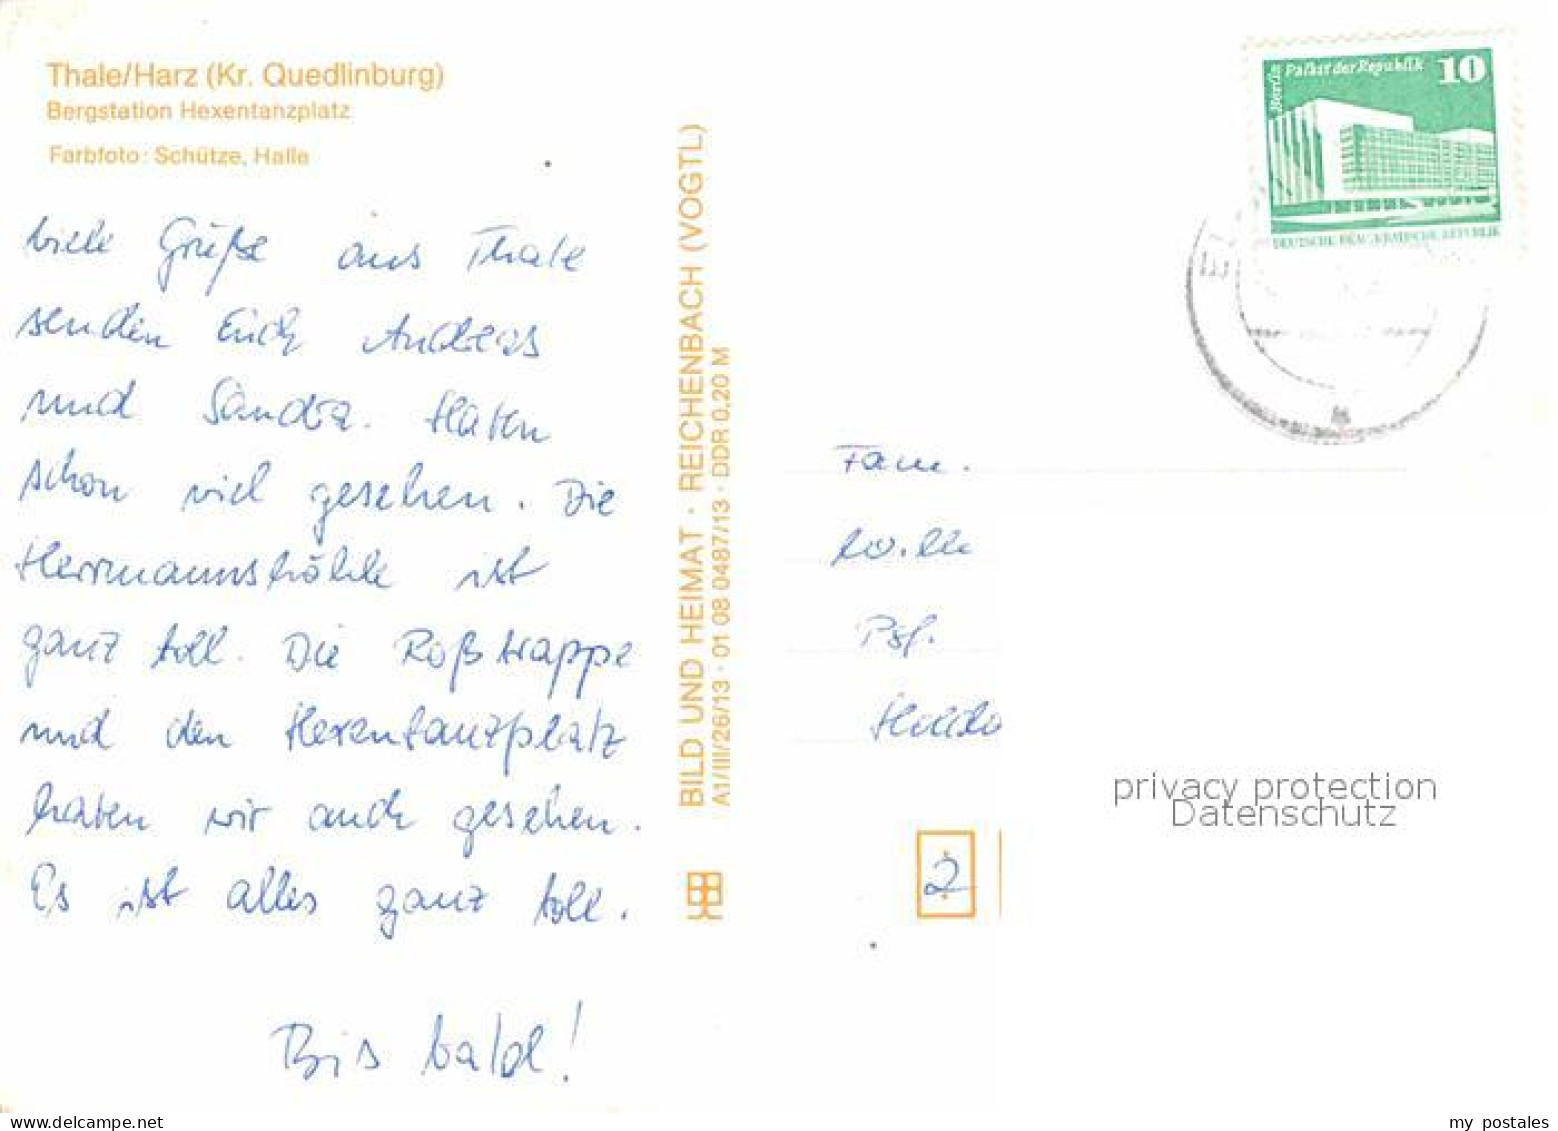 Thale/Harz (Kr. Quedlinburg)
Bergstation Hexentanzplatz
Farbfoto: Schütze, Halle
Viele Grüße aus Thale
senden Euch Andreas
und Sandra. Haben
schon viel gesehen. Die
Herrmannshöhle ist
ganz toll. Die Roßtrappe
und den Hexentanzplatz
haben wir auch gesehen.
Es ist alles ganz toll.
Bis bald!
BILD UND HEIMAT · REICHENBACH (VOGTL)
A1/III/26/13 · 01 08 0487/13 · DDR 0,20 M
Berlin Palast der Republik 10
DEUTSCHE DEMOKRATISCHE REPUBLIK
Fam.
Psf.
2
privacy protection
Datenschutz
my postales